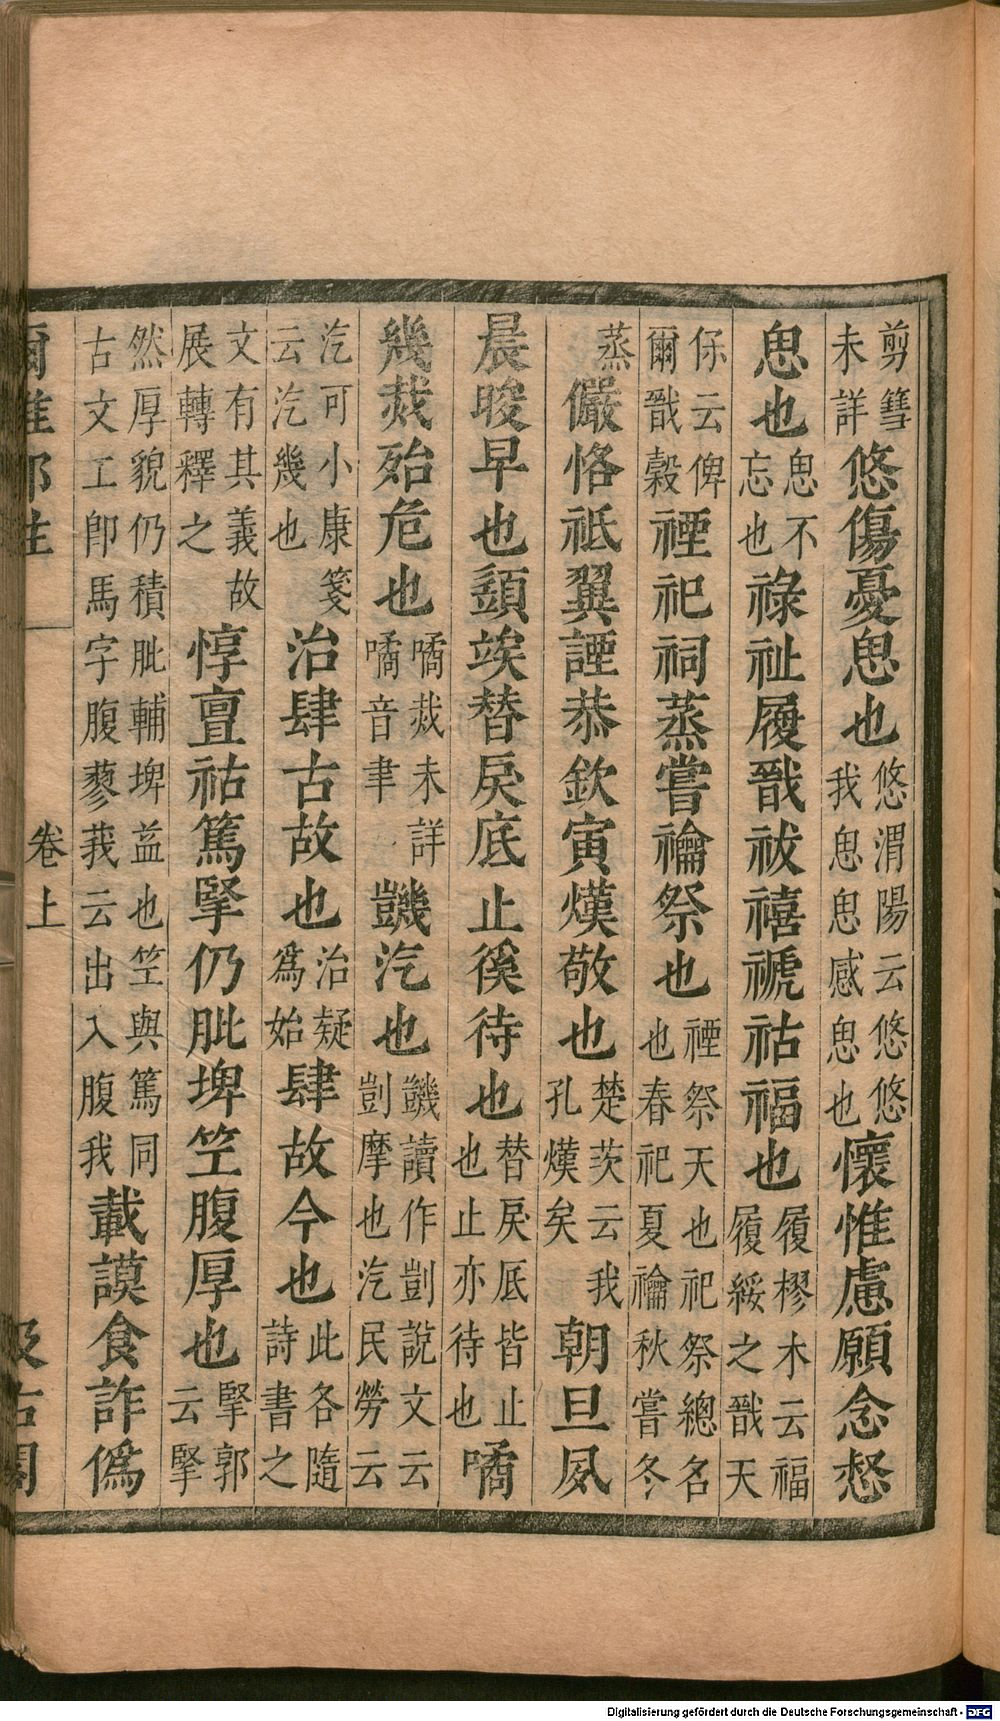 剪篲未詳悠傷憂思也悠渭陽云悠悠我思思感思也懷惟慮願念惄
思也思不忘也祿祉履戩祓禧禠祜福也履樛木云福履綏之戩天
保云俾爾戩穀禋祀祠蒸嘗禴祭也禋祭天也祀祭總名也春祀夏禴秋嘗冬
蒸儼恪祗翼諲恭欽寅熯敬也楚茨云我孔熯矣朝旦夙
晨晙早也䇓竢替戾底止徯待也替戾底皆止也止亦待也噊
幾烖殆危也噊烖未詳噊音聿𧰙汔也𧰙讀作剴說文云剴摩也汔民勞云
汔可小康箋云汔幾也治肆古故也治疑爲始肆故今也此各隨詩書之
文有其義故展轉釋之惇亶祜篤掔仍肶埤竺腹厚也掔郭云掔
然厚貌仍積肶輔埤益也竺與篤同古文工卽馬字腹蓼莪云出入腹我載謨食詐僞
爾雅鄭注 卷上 汲古閣
Digitalisierung gefördert durch die Deutsche Forschungsgemeinschaft - DFG